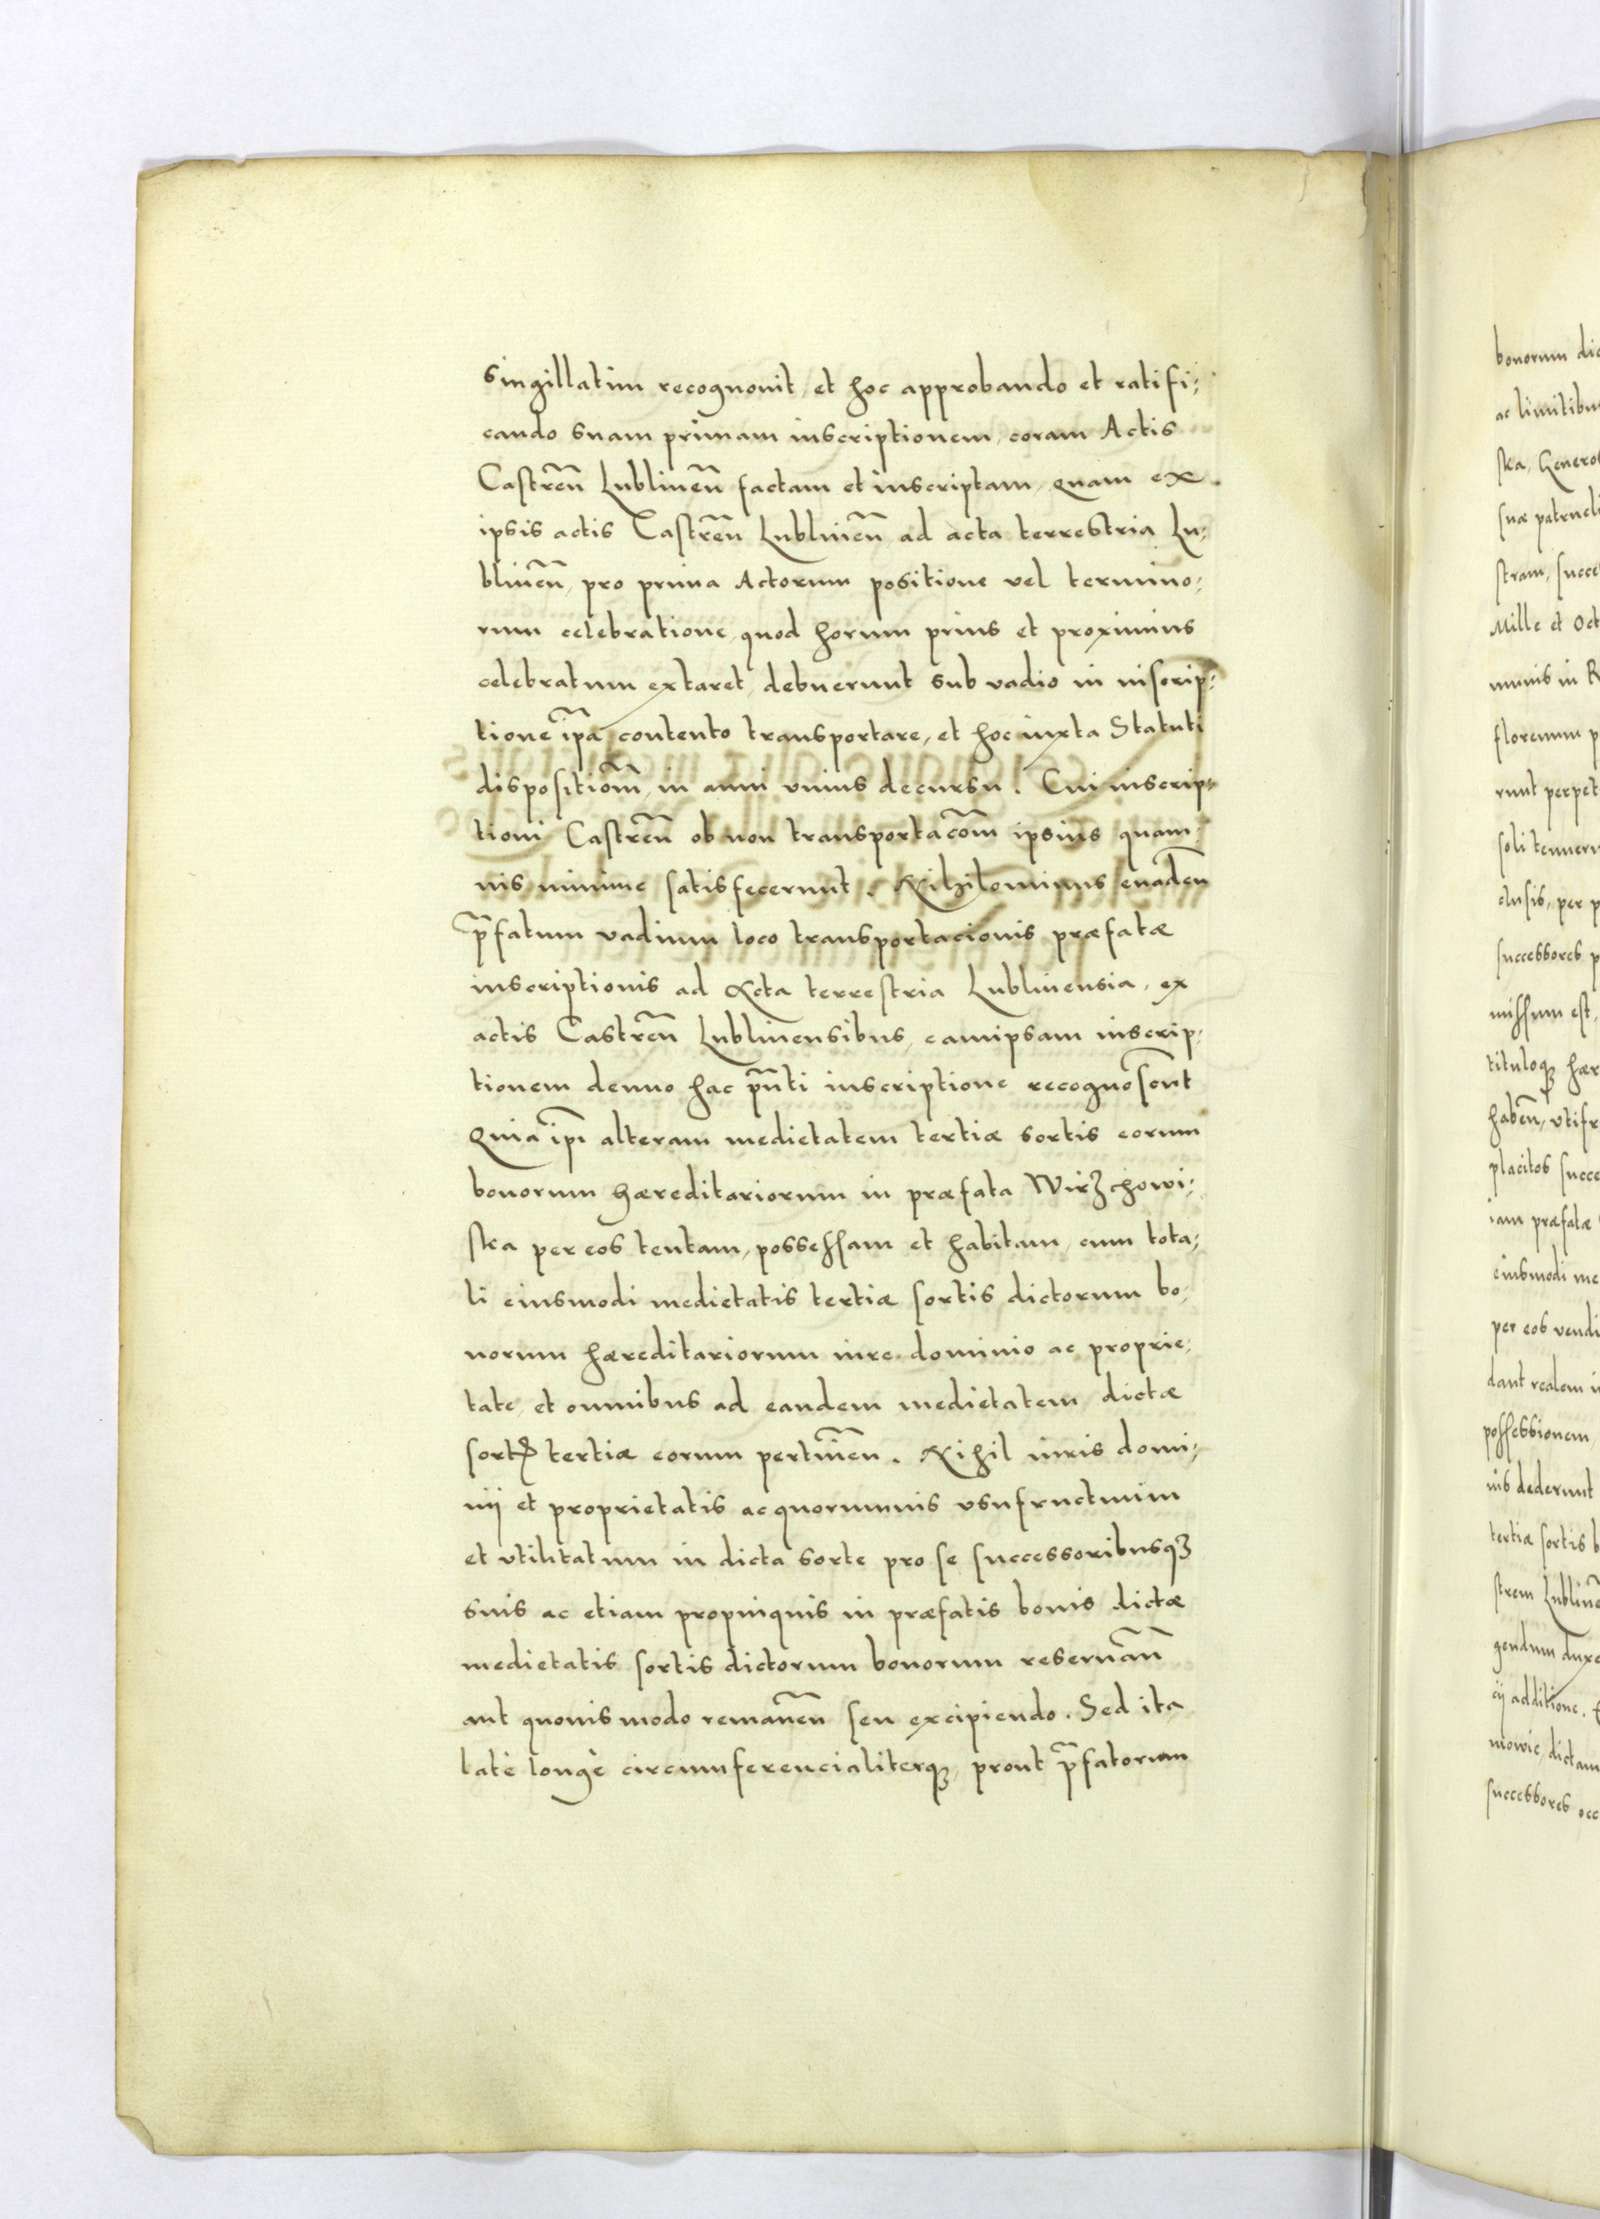 singillatim recognovit, et hoc approbando et ratifi;
cando suam primam inscriptionem, coram Actis
Castreñ Lublineñ factam et inscriptam, quam ex
ipsis actis Castreñ Lublineñ ad acta terrestria Lu;
blineñ, pro prima Actorum positione vel termino;
rum celebratione, quod horum prius et proximius
celebratum extaret, debuerunt sub vadio in inscrip;
tione ip̃a contento transportare, et hoc iuxta Statuti
dispositiom̃, in anni unius decursu. Cui inscrip;
tioni Castreñ ob non transportacõm ipsius quam
vis minime satisfecerunt. Nihilominus evadeñ
p̃fatum vadium loco transportacionis præfatæ
inscriptionis ad Acta terrestria Lublinensia, ex
actis Castreñ Lublinensibus, eamipsam inscrip;
tionem denuo hac p̃nti inscriptione recognoscũt
Quia ip̃i alteram medietatem tertiæ sortis eorum
bonorum hæreditariorum in præfata Wirzchowi;
ska per eos tentam, possessam et habitam, cum tota;
li eiusmodi medietatis tertiæ sortis dictorum bo;
norum hæreditariorum iure dominio ac proprie;
tate, et omnibus ad eandem medietatem dictæ
sortis tertiæ eorum pertineñ. Nihil iuris domi;
nij et proprietatis ac quorumvis usufructuum
et utilitatum in dicta sorte pro se successoribusq3
suis ac etiam propinquis in præfatis bonis dictæ
medietatis sortis dictorum bonorum reservañ
aut quovis modo remaneñ seu excipiendo. Sed ita
latè longè circumferencialiterq3, prout p̃fatorum
bonorum
ac limitibus
ska, Generos
suæ patrueli
stram, succe
Mille et Oct
muius in R
florenum p
runt perpet
soli tenueru
clusis, per p
successores p
missum est,
tituloq3 hær
habeñ, utifr
placitos succe
iam præfatæ
eiusmodi me
per eos vendi
dant realem i
possessionem,
nis dederunt
tertiæ sortis b
strem Lubline
gendum duxe
cij additione. E
mowie, dictam
successores occ